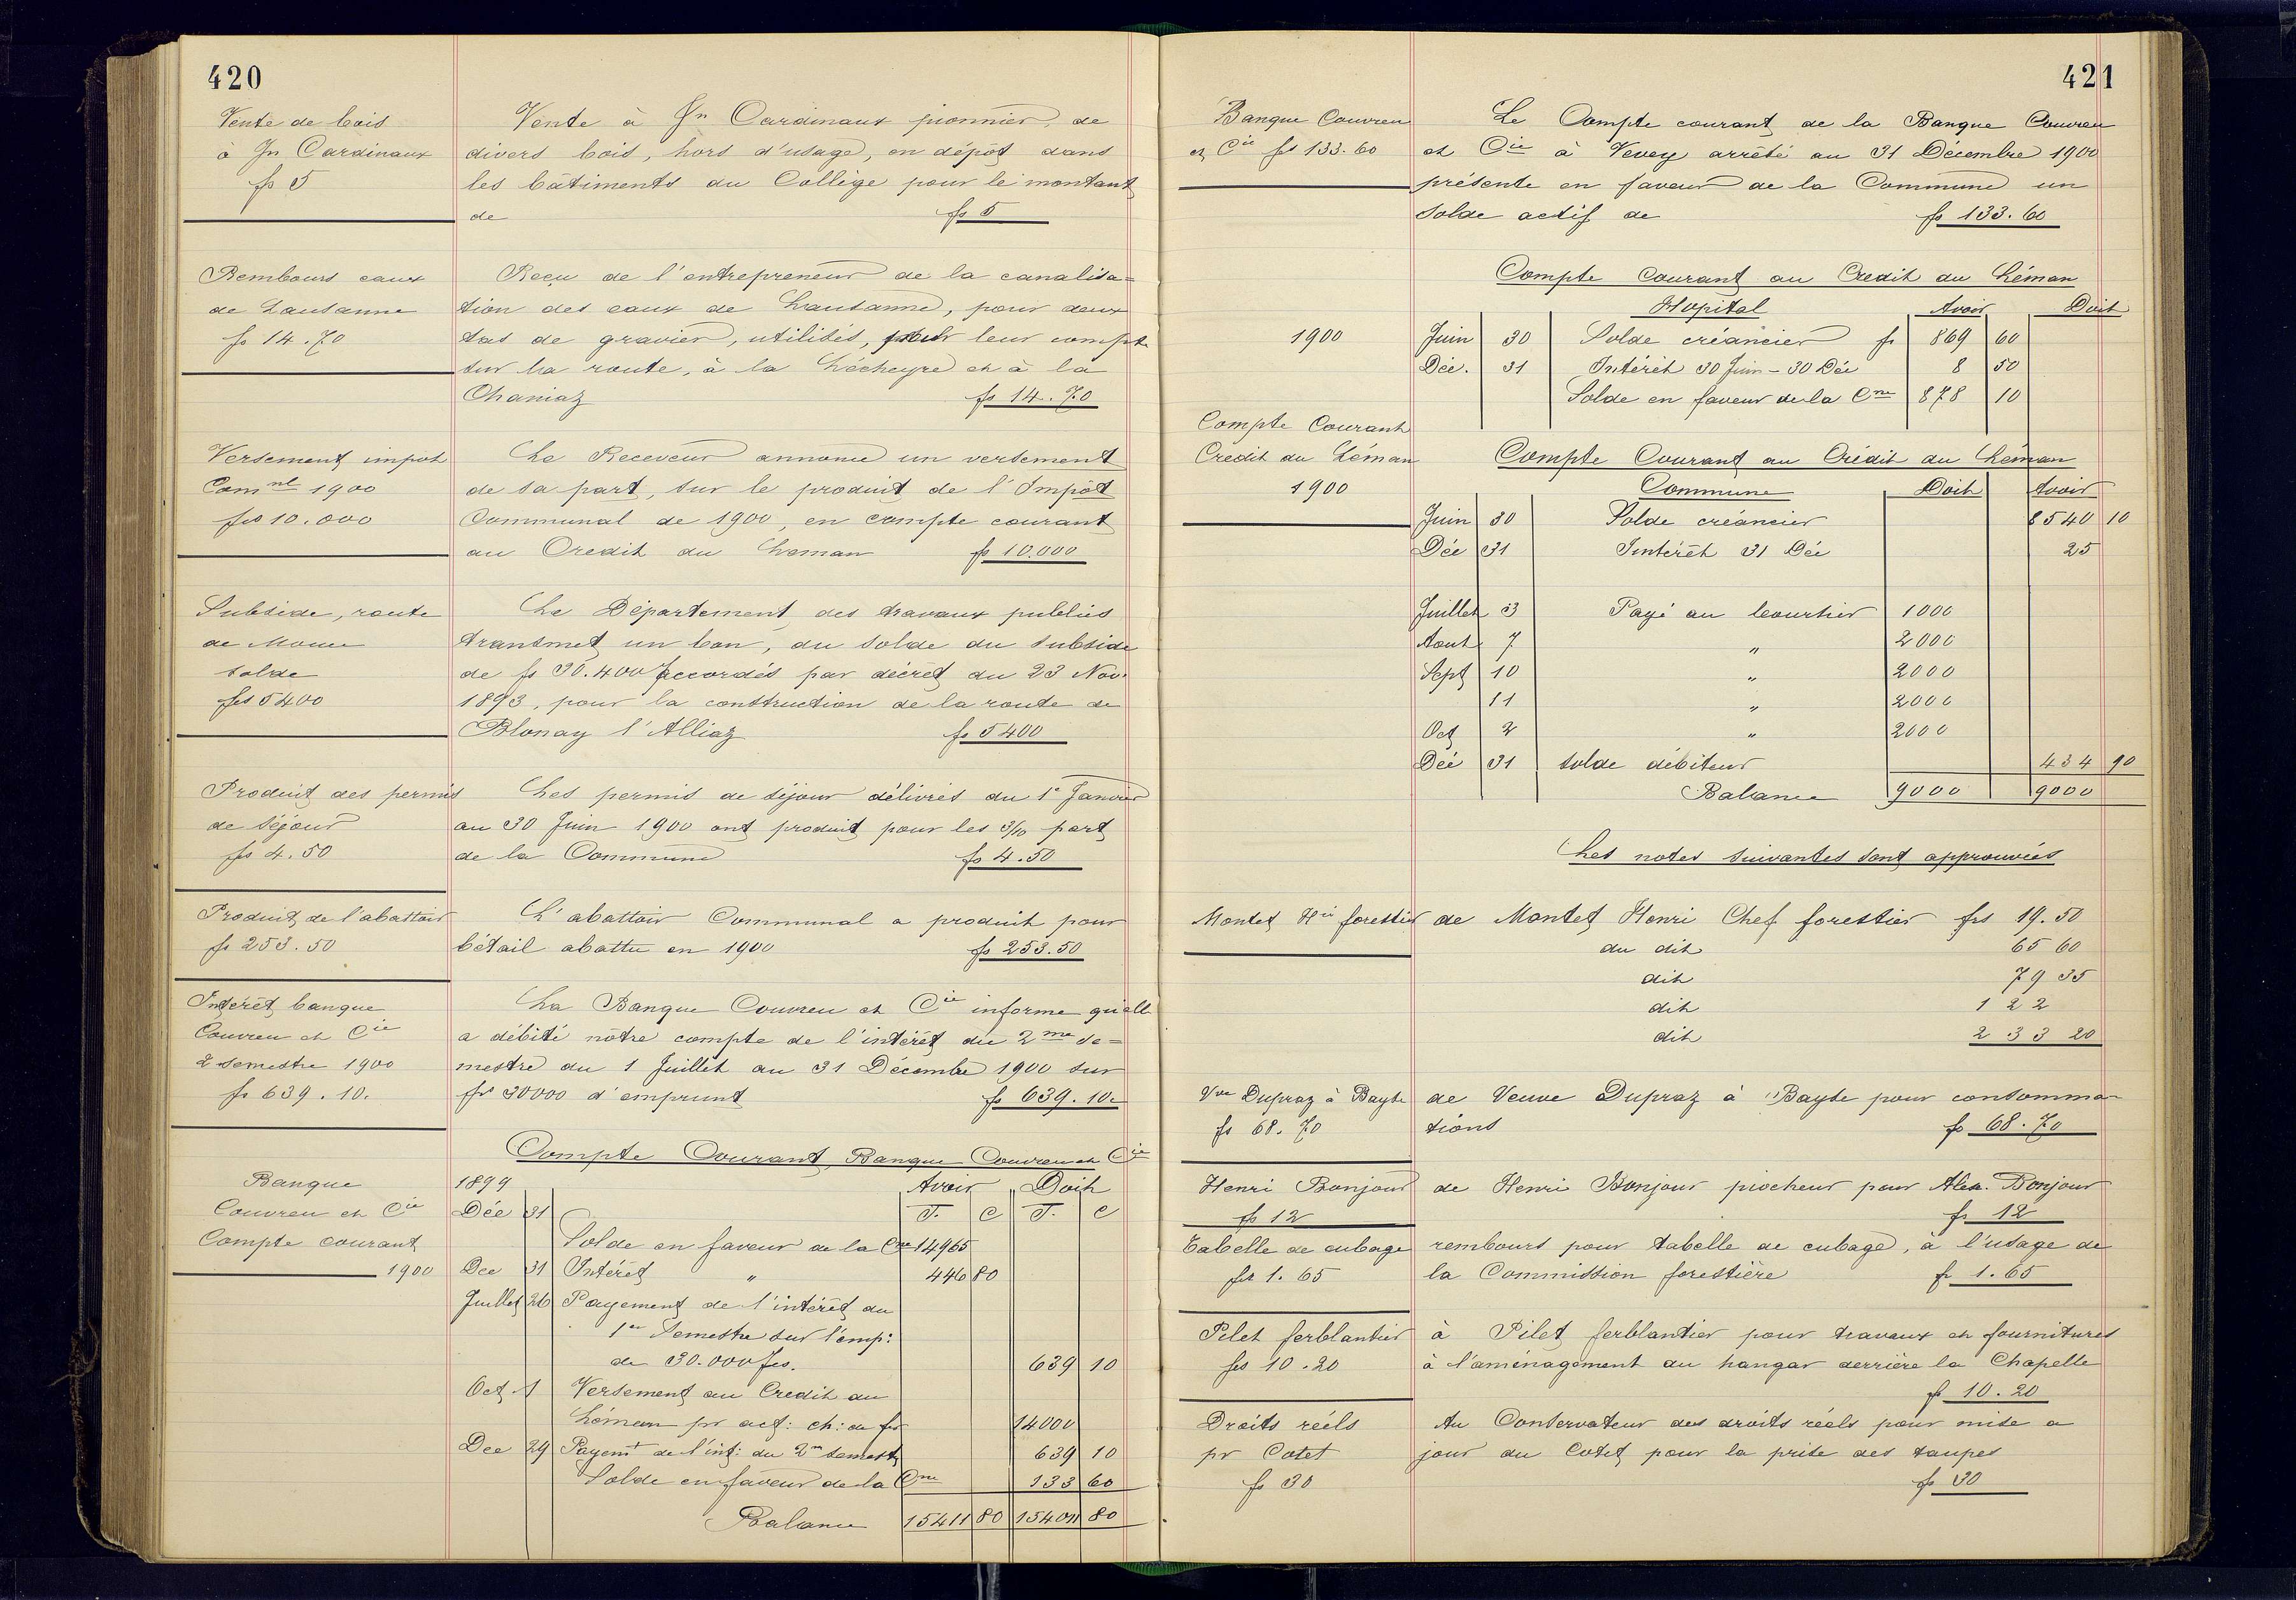 420
Vente de bois
à Jn Cardinaux
fr 5
Vente à Jn Cardinaux pionnier, de
divers bois, hors d'usage, en dépôt dans
les bâtiments du Collège pour le montant
de fr 5
Rembours eaux
de Lausanne
fr 14.70
Reçu de l'entrepreneur de la canalisa=
tion des eaux de Lausanne, pour deux
tas de gravier, utilisés, pour leur compte
sur la route, à la Lécheyre et à la
Chaniaz fr 14.70
Versement impot
Comnl 1900
frs 10.000
Le Receveur annonce un versement
de sa part, sur le produit de l'Impôt
Communal de 1900, en compte courant
au Credit du Leman fr 10.000
Subside, route
de
solde
frs 5400
Le Département des travaux publics
transmet un bon, du solde du subside
de fr 30.400 accordés par décret du 23 Nov.
1893, pour la construction de la route de
Blonay l'Alliaz fr 5400
Produit des permis
de séjour
frs 4.50
Les permis de séjour délivrés du 1r Janvier
au 30 Juin 1900 ont produit pour les 3/10 part
de la Commune fr 4.50
Produit de l'abattoir
fr 253.50
L'abattoir Communal a produit pour
bétail abattu en 1900 fr 253.50
Intérêt banque
Couvreu et Cie
2 semestre 1900
fr 639.10.
La Banque Couvreu et Cie informe qu'elle
a débité nôtre compte de l'intérêt du 2me se=
mestre du 1 Juillet au 31 Décembre 1900 sur
fr 30000 d'emprunt fr 639.10.
Compte Courant Banque Couvreu et Cie
Banque
Couvreu et Cie
Compte courant
1900
1899 Avoir Doit
Déc 31 F. C F. C
Solde en faveur de la Cne 14965
Dec 31 Intérêt " 446 80
Juillet 26 Payement de l'intérêt du
1er Semestre sur l'emp:
de 30.000 frs. 639 10
Oct 1 Versement au Credit du
Léman pr act: ch: de fer 14000
Dec 29 Payemt de l'int: du 2m semest 639 10
Solde en faveur de la Cne 133 60
Balance 15411 80 15411 80
421
Banque Couvreu
et Cie frs 133.60
Le Compte courant de la Banque Couvreu
et Cie à Vevey arrêté au 31 Décembre 1900
présente en faveur de la Commune un
solde actif de fr 133.60
Compte Courant au Credit du Léman
Hopital Avoir Doit
1900 Juin 30 Solde créancier fr 869 60
Déc. 31 Intérêt 30 Juin - 30 Déc 8 50
Solde en faveur de la Cne 878 10
Compte Courant
Crédit du Léman
1900
Compte Courant au Crédit du Léman
Commune Doit Avoir
Juin 30 Solde créancier 8540 10
Déc 31 Intérêt 31 Déc 25
Juillet 3 Payé au boursier 1000
Aout 7 " 2000
Sept 10 " 2000
11 " 2000
Oct 2 " 2000
Déc 31 solde débiteur 434 90
Balance 9000 9000
Les notes suivantes sont approuvées
Montet Hri forestier
de Montet Henri Chef forestier frs 19.50
du dit 65 60
dit 79 35
dit 122
dit 233 20
Vve Dupraz à Bayse
fs 68.70
de Veuve Dupraz à Bayse pour consomma-
tions fr 68.70
Henri Bonjour
fr 12
de Henri Bonjour piocheur pour Alex. Bonjour
fr 12
Tabelle de cubage
frs 1.65
rembours pour tabelle de cubage, à l'usage de
la Commission forestière fr 1.65
Pilet ferblantier
frs 10.20
à Pilet ferblantier pour travaux et fournitures
à l'aménagement du hangar derrière la Chapelle
fr 10.20
Droits réels
pr Cotet
fr 30
Au Conservateur des droits réels pour mise a
jour du Cotet pour la prise des taupes
fr 30